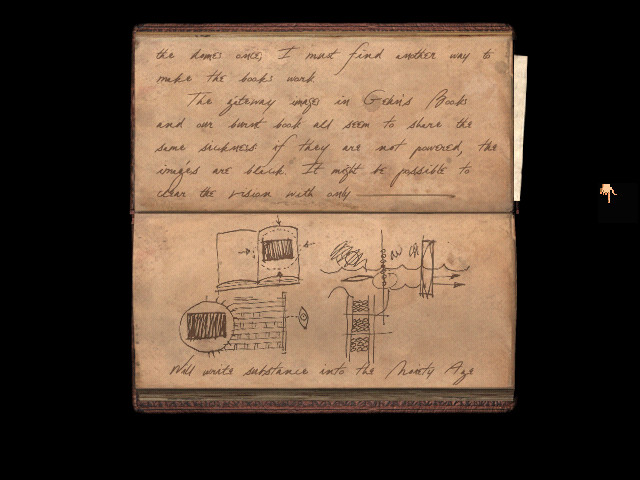 the domes once, I must find another way to
make the books work.
The gateway images in Gehn's Books
and our burnt book all seem to share the
same sickness if they are not powered, the
images are black. It might be possible to
clear the vision with only
Will write substance into the Moiety Age